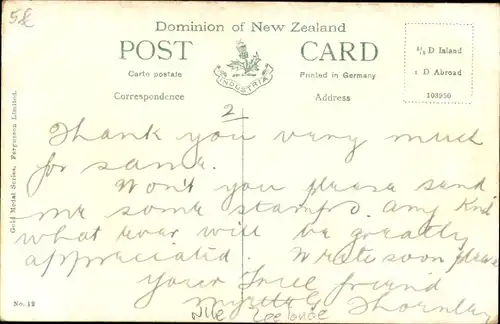 5£
Dominion of New Zealand
POST CARD
Carte postale
Printed in Germany
INDUSTRIA
Correspondence
Address
½ D Inland
1 D Abroad
103950
Gold Medal Series, Fergusson Limited.
2
Thank you very much
for same.
Won't you please send
me some stamps. any Kind
what ever will be greatly
appreciated. Write soon please
your True friend
Myrtle Thornley
No. 12
Nlle Zeelande